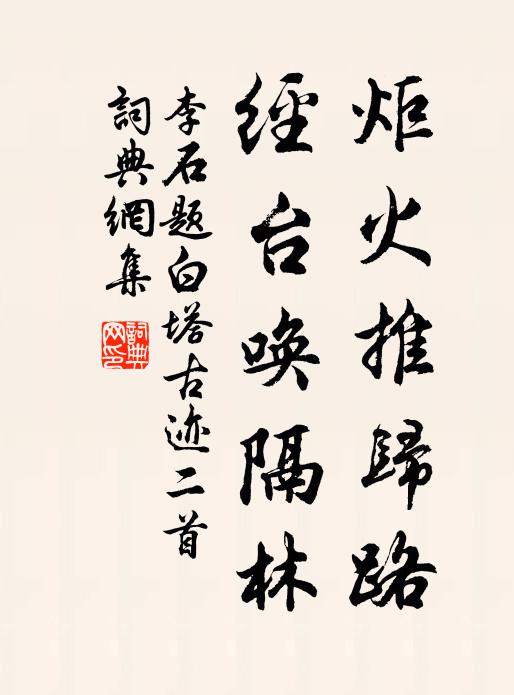 炬火推歸路
經台唤隔林
李石题白塔古迹二首
詞典網集
詞典网印